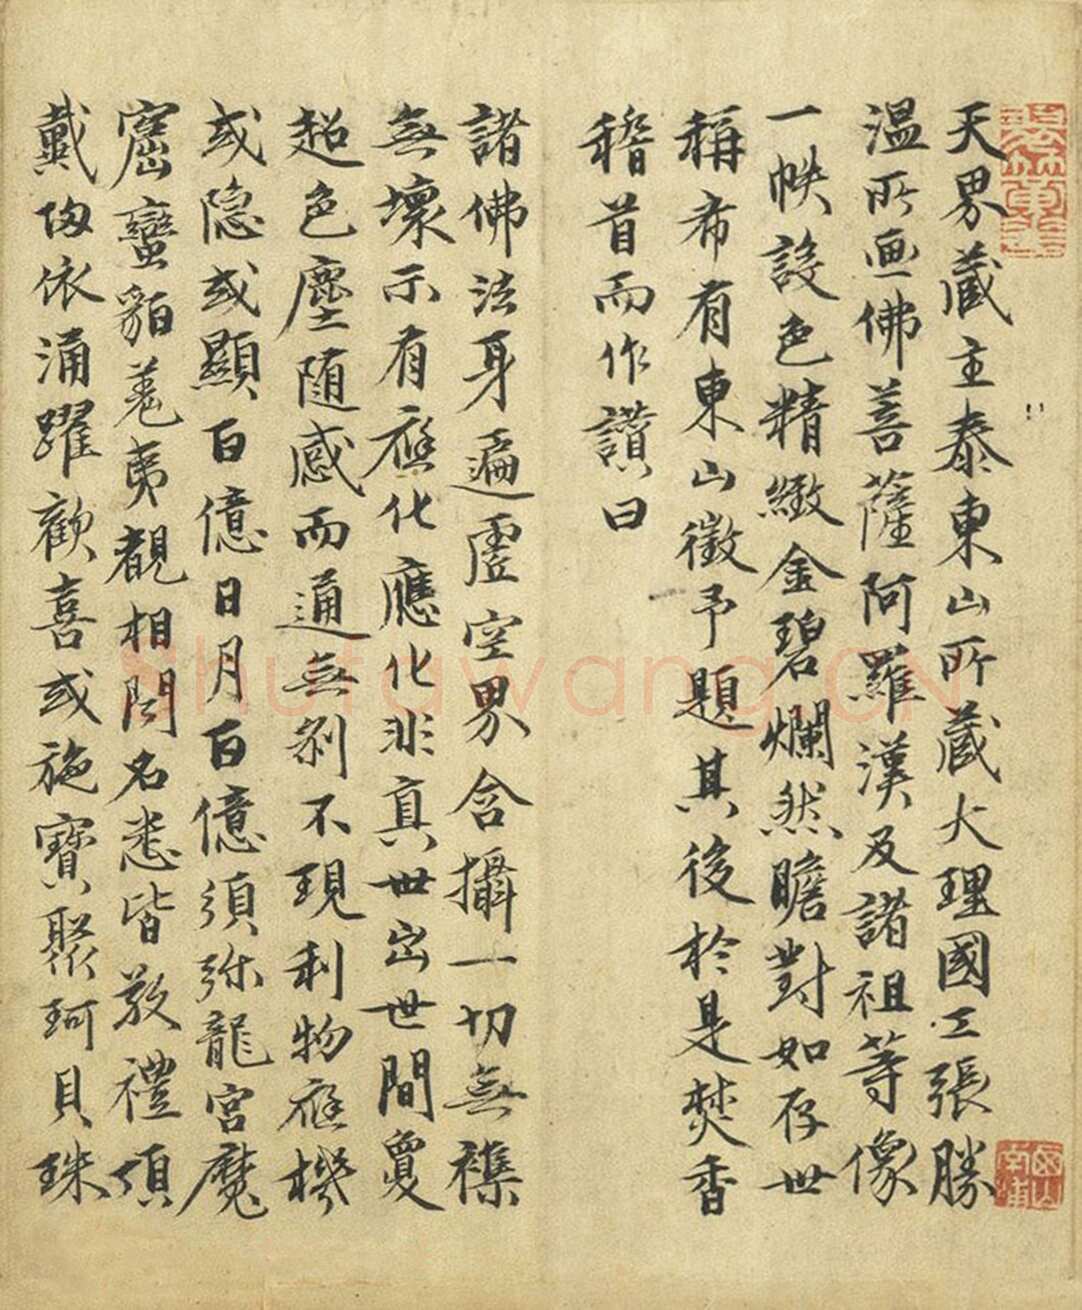 天界藏主泰東山所藏大理國工張勝
温所画佛菩薩阿羅漢及諸祖等像
一帙設色精緻金碧爛然瞻對如存世
稱希有東山徵予題其後於是焚香
稽首而作讚曰
諸佛法身遍虛空界含攝一切無襍
無壞示有應化應化非真世出世間夐
超色塵随感而通無剎不現利物應機
或隐或顯百億日月百億須弥龍宮魔
窟蠻貊羌夷覩相聞名悉皆敬禮頂
戴皈依涌躍歡喜或施寶聚珂貝珠
Shufawang.CN